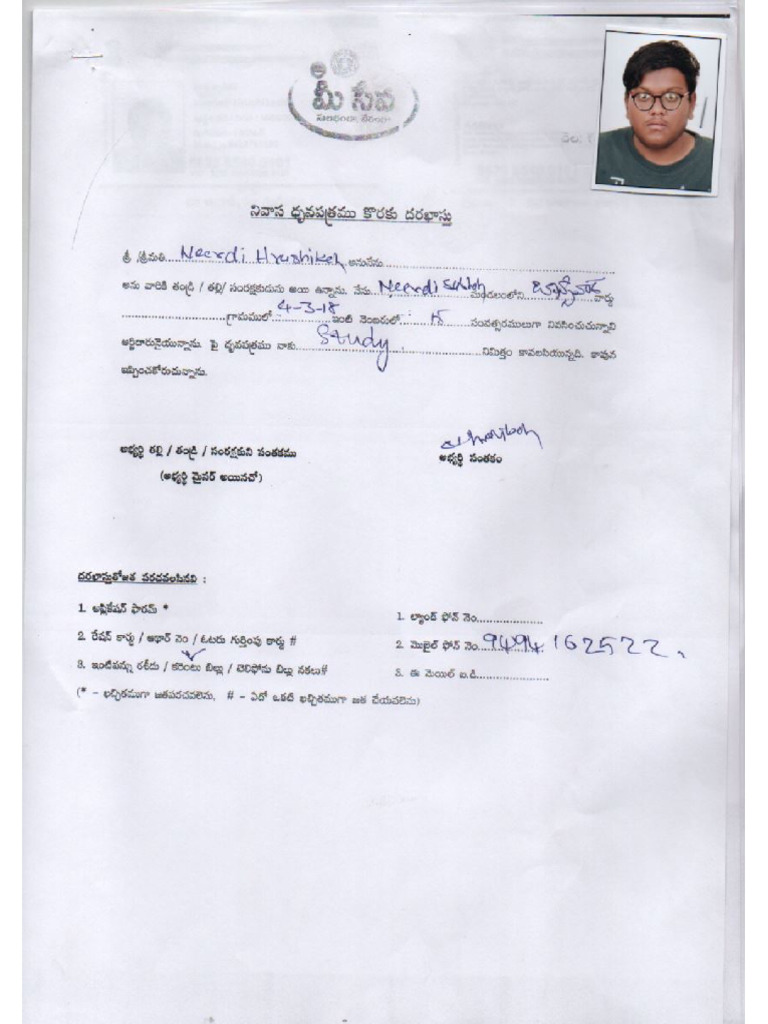 మీ సేవ
నివాస ధృవపత్రము కొరకు దరఖాస్తు
శ్రీ శ్రీమతి.... Neeradi Hrushikesh అనునేను
అను వారికి తండ్రి / తల్లి/ సంరక్షకుడును అయి ఉన్నాను. నేను Neeradi మండలంలోని వార్డు
గ్రామములో 4-3-18 ఇంటి నెంబరులో : 18 సంవత్సరములుగా నివసించుచున్నాను
అర్జీదారునైయున్నాను. పై ధృవపత్రము నాకు Study నిమిత్తం కావలసియున్నది. కావున
ఇప్పించకోరుచున్నాను.
అభ్యర్థి తల్లి / తండ్రి / సంరక్షకుని సంతకము
అభ్యర్థి సంతకం
(అభ్యర్థి మైనర్ అయినచో)
దరఖాస్తుతోజత పరచవలసినవి :
1. అప్లికేషన్ ఫారమ్ *
2. రేషన్ కార్డు / ఆధార్ నెం / ఓటరు గుర్తింపు కార్డు #
3. ఇంటిపన్ను రశీదు / కరెంటు బిల్లు / టెలిఫోను బిల్లు నకలు#
(* - ఖచ్చితముగా జతపరచవలెను, # - ఏదో ఒకటి ఖచ్చితముగా జత చేయవలెను)
1. ల్యాండ్ ఫోన్ నెం...................
2. మొబైల్ ఫోన్ నెం. 9494162522.
3. ఈ మెయిల్ ఐ.డి.....................